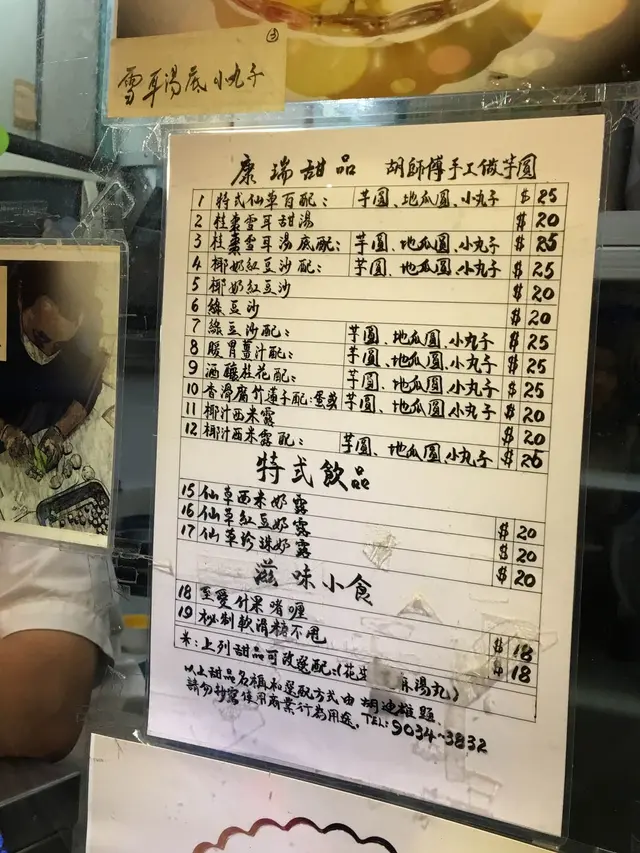 雪耳湯底小丸子
康瑞甜品 胡師傅手工做芋圓
1 特式仙草百配: 芋圓、地瓜圓、小丸子 $25
2 桂棗雪耳甜湯 $20
3 桂棗雪耳湯底配: 芋圓、地瓜圓、小丸子 $25
4 椰奶紅豆沙配: 芋圓、地瓜圓、小丸子 $25
5 椰奶紅豆沙 $20
6 綠豆沙 $20
7 綠豆沙配: 芋圓、地瓜圓、小丸子 $25
8 暖胃薑汁配: 芋圓、地瓜圓、小丸子 $25
9 酒釀桂花配: 芋圓、地瓜圓、小丸子 $25
10 香滑腐竹蓮子配: 芋圓、地瓜圓、小丸子 $20
11 椰汁西米露 $20
12 椰汁西米露配: 芋圓、地瓜圓、小丸子 $25
特式飲品
15 仙草西米奶露 $20
16 仙草紅豆奶露 $20
17 仙草珍珠奶露 $20
滋味小食
18 至愛什果啫喱 $18
19 秘制軟滑糖不甩 $18
*:上列甜品可改選配:(花生 湯丸)
以上甜品名稱和選配方式由胡迪雄題
請勿抄寫使用商業行為用途. TEL: 9034-3832